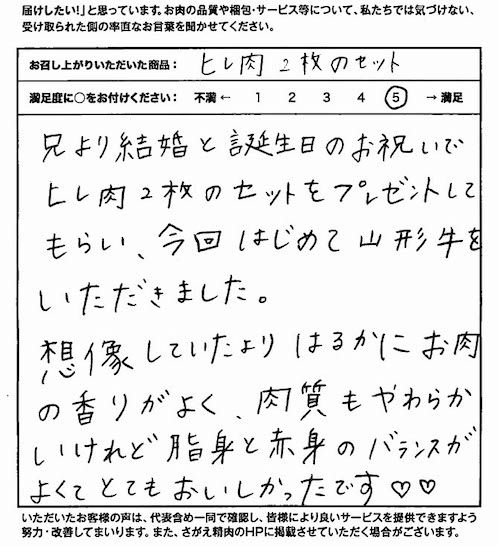 届けしたい!」と思っています。お肉の品質や梱包・サービス等について、私たちでは気づけない、
受け取られた側の率直なお言葉を聞かせてください。
お召し上がりいただいた商品： ヒレ肉2枚のセット
満足度に○をお付けください： 不満 ← 1 2 3 4 5 → 満足
兄より結婚と誕生日のお祝いで
ヒレ肉2枚のセットをプレゼントして
もらい、今回はじめて山形牛を
いただきました。
想像していたよりはるかにお肉
の香りがよく、肉質もやわらか
いけれど脂身と赤身のバランスが
よくてとてもおいしかったです♡♡
いただいたお客様の声は、代表含め一同で確認し、皆様により良いサービスを提供できますよう
努力・改善してまいります。また、さがえ精肉のHPに掲載させていただく場合がございます。